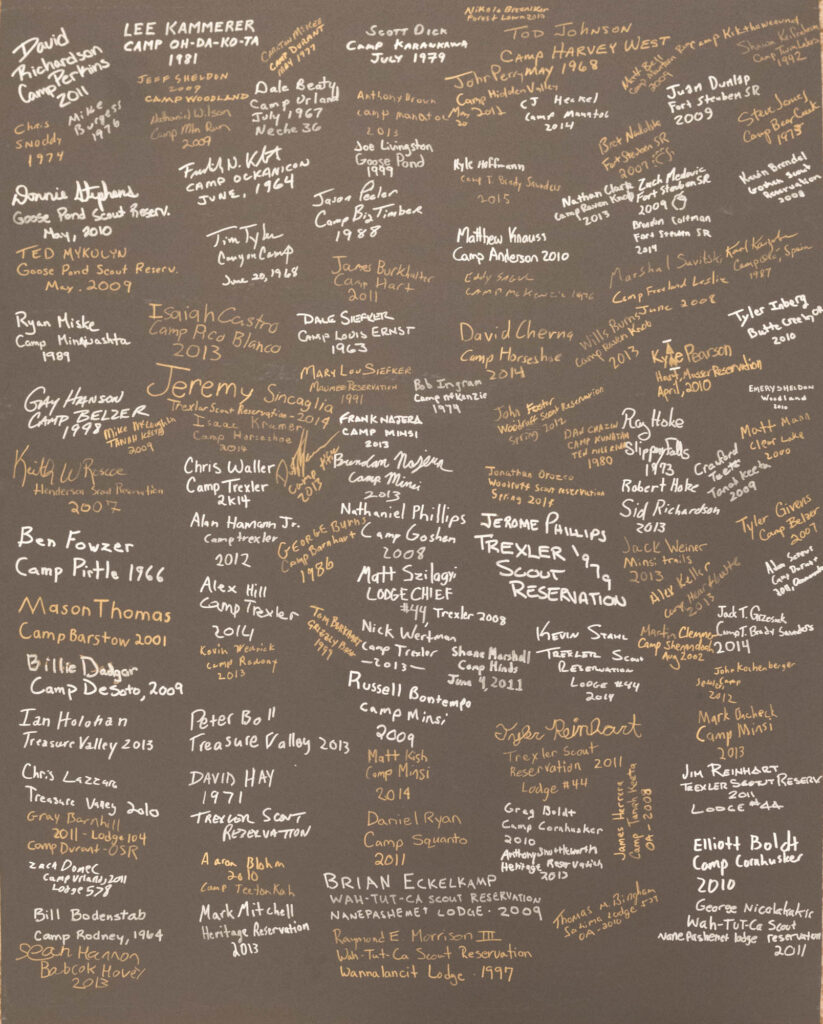 David
Richardson
Camp
Perkins
2011
LEE KAMMERER
CAMP OH-DA-KO-TA
1981
CAMP DURANT
MAY 1977
SCOTT DICK
CAMP KARANKAWA
JULY 1979
Forest Lawn 2010
TOD JOHNSON
CAMP HARVEY WEST
MAY 1968
Matt Bell
2009
Camp Kikthawenund
1992
Chris
Snoddy
1974
Mike
Burgess
1976
JEFF SHELDON
2009
CAMP WOODLAND
Nathaniel Wilson
Camp Mtn Run
2009
Dale Beaty
Camp Urland
July 1967
Neche 36
Anthony Brown
camp manatoc
2013
John Perry
Camp Hidden Valley
May 2012
CJ Henkel
Camp Manatoc
2014
Juan Dunlap
Fort Steuben SR
2009
Steve Jones
Camp Bear Creek
1975
Joe Livingston
Goose Pond
1999
Bret
Fort Steuben SR
2007
CAMP OCKANICON
JUNE, 1964
Kyle Hoffmann
Camp T. Brady Saunders
2015
Nathan Clark
Camp Raven Knob
2013
Zach Medovic
Fort Steuben SR
2009
Brendon Coffman
Fort Steuben SR
2014
Kevin Brendel
Scout
Reservation
2008
Donnie Stephens
Goose Pond Scout Reserv.
May, 2010
Jason Peeler
Camp Big Timber
1988
Tim Tyler
Canyon Camp
June 20, 1968
Matthew Knauss
Camp Anderson 2010
TED MYKOLYN
Goose Pond Scout Reserv.
May. 2009
James Burkhalter
Camp Hart
2011
Eddy
CAMP McKENZIE 1976
Marshal Savitski
Camp Freeland Leslie
June 2008
Karl
Spain
1987
Ryan Miske
Camp Minnewashta
1989
Isaiah Castro
Camp Pico Blanco
2013
DALE SHEFKER
CAMP LOUIS ERNST
1963
David Cherna
Camp Horseshoe
2014
Wills Burns
Camp Raven Knob
2013
Tyler Inberg
Butte Creek
2010
Kyle Pearson
Hart, Musser Reservation
April, 2010
MARY LOU SHEFKER
MAUMEE RESERVATION
1991
Bob Ingram
Camp McKenzie
1979
EMERY SHELDON
Woodland
2010
GAY HANSON
CAMP BELZER
1998
Jeremy Sincaglia
Trexler Scout Reservation - 2014
Isaac Kramer
Camp Horseshoe
2014
FRANK NAJERA
CAMP MINSI
2013
John Foster
Woodruff Scout Reservation
Spring 2012
DAN CHAZIN
CAMP KUNATAH
TEN MILE RIVER
1980
Ray Hoke
Slippery Falls
1973
Matt Mann
Clear Lake
2000
Mike McLaughlin
TANAH KEETA
2009
Keith W Rescoe
Henderson Scout Reservation
2007
Chris Waller
Camp Trexler
2K14
Camp
2013
Brendan Najera
Camp Minsi
2013
Jonathan Orozco
Woodruff Scout reservation
Spring 2014
Robert Hoke
Sid Richardson
2013
Crawford
Teeter
Tanah Keeta
2009
Ben Fowzer
Camp Pirtle 1966
Alan Hamann Jr.
Camp trexler
2012
GEORGE BURNS
Camp Barnhart
1986
Nathaniel Phillips
Camp Goshen
2008
JEROME PHILLIPS
TREXLER '1979
SCOUT
RESERVATION
Jack Weiner
Minsi trails
2013
Tyler Givens
Camp Belzer
2007
Alex Keller
2013
Mason Thomas
Camp Barstow 2001
Alex Hill
Camp Trexler
2014
Tom Burkhart
GRIZZLY PARK
1997
Matt Szilagyi
LODGE CHIEF
#44, Trexler 2008
Nick Wertman
Camp Trexler
—2013—
Shane Marshall
Camp Hinds
June 4, 2011
KEVIN STAHL
TREXLER SCOUT
RESERVATION
LODGE #44
2014
Martin Clemmer
Camp Shenandoah
Aug 2002
Jack T. Grzesiuk
Camp T. Brady Saunders
2014
Billie Dadgar
Camp DeSoto, 2009
Kevin Wednick
Camp Rodney
2013
Russell Bontempo
Camp Minsi
2009
John Kochenberger
camp
2012
Mark Oncheck
Camp Minsi
2013
Ian Holohan
Treasure Valley 2013
Peter Boll
Treasure Valley 2013
Tyler Reinhart
Trexler Scout
Reservation 2011
Lodge #44
Matt Kish
Camp Minsi
2014
James Herrera
Camp Tanah Keeta
OA - 2008
JIM REINHART
TREXLER SCOUT RESERV
2011
LODGE #44
Chris Lazzaro
Treasure Valley 2010
DAVID HAY
1971
TREXLER SCOUT
RESERVATION
Gray Barnhill
2011 - Lodge 104
Camp Durant - OSR
Daniel Ryan
Camp Squanto
2011
Greg Boldt
Camp Cornhusker
2010
Anthony Shuttleworth
Heritage Reservation
2013
Elliott Boldt
Camp Cornhusker
2010
Zach Donec
Camp Urland, 2011
Lodge 578
Aaron Blohm
2010
Camp TeetonKah
BRIAN ECKELKAMP
WAH-TUT-CA SCOUT RESERVATION
NANEPASHEMET LODGE · 2009
Thomas M. Bingham
Lodge
OA - 2010
George Nicolakakis
Wah-TUT-Ca Scout
Nanepashemet lodge reservation
2011
Bill Bodenstab
Camp Rodney, 1964
Mark Mitchell
Heritage Reservation
2013
Raymond E. Morrison III
Wah-Tut-Ca Scout Reservation
Wannalancit Lodge · 1997
Sean Hannon
Babcock Hovey
2013